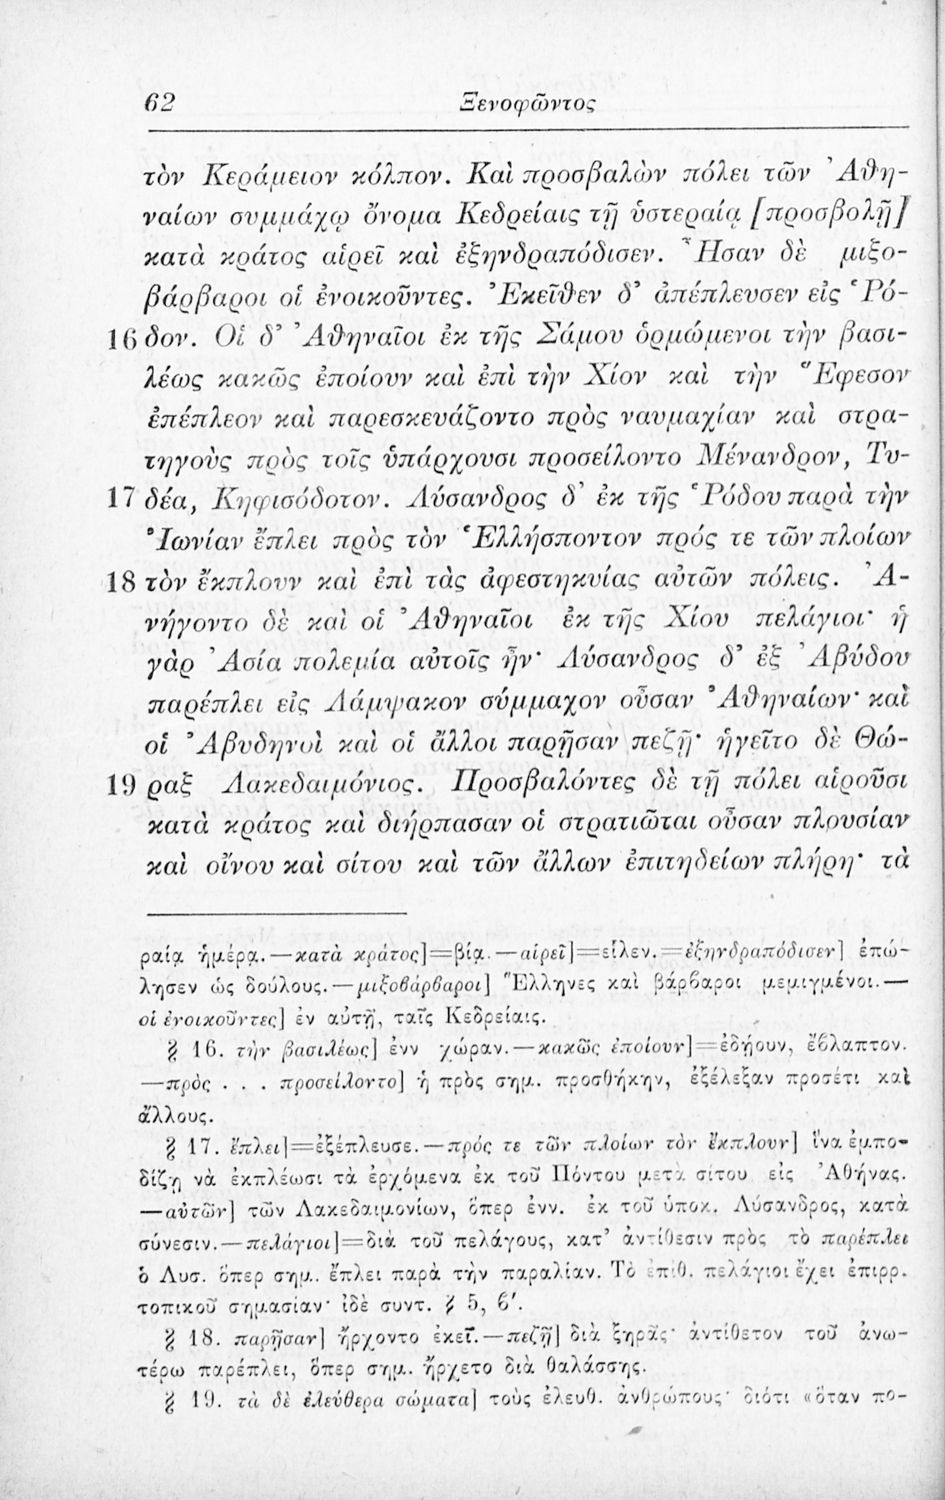 62 Ξενοφῶντος
τὸν Κεράμειον κόλπον. Καὶ προσβαλὼν πόλει τῶν Ἀθη-
ναίων συμμάχῳ ὄνομα Κεδρείαις τῇ ὑστεραίᾳ [προσβολῇ]
κατὰ κράτος αἱρεῖ καὶ ἐξηνδραπόδισεν. Ἦσαν δὲ μιξο-
βάρβαροι οἱ ἐνοικοῦντες. Ἐκεῖθεν δ' ἀπέπλευσεν εἰς Ῥό-
16 δον. Οἱ δ' Ἀθηναῖοι ἐκ τῆς Σάμου ὁρμώμενοι τὴν βασι-
λέως κακῶς ἐποίουν καὶ ἐπὶ τὴν Χίον καὶ τὴν Ἔφεσον
ἐπέπλεον καὶ παρεσκευάζοντο πρὸς ναυμαχίαν καὶ στρα-
τηγοὺς πρὸς τοῖς ὑπάρχουσι προσείλοντο Μένανδρον, Τυ-
17 δέα, Κηφισόδοτον. Λύσανδρος δ' ἐκ τῆς Ῥόδου παρὰ τὴν
Ἰωνίαν ἔπλει πρὸς τὸν Ἑλλήσποντον πρός τε τῶν πλοίων
18 τὸν ἔκπλουν καὶ ἐπὶ τὰς ἀφεστηκυίας αὐτῶν πόλεις. Ἀ-
νήγοντο δὲ καὶ οἱ Ἀθηναῖοι ἐκ τῆς Χίου πελάγιοι· ἡ
γὰρ Ἀσία πολεμία αὐτοῖς ἦν· Λύσανδρος δ' ἐξ Ἀβύδου
παρέπλει εἰς Λάμψακον σύμμαχον οὖσαν Ἀθηναίων· καὶ
οἱ Ἀβυδηνοὶ καὶ οἱ ἄλλοι παρῆσαν πεζῇ· ἡγεῖτο δὲ Θώ-
19 ραξ Λακεδαιμόνιος. Προσβαλόντες δὲ τῇ πόλει αἱροῦσι
κατὰ κράτος καὶ διήρπασαν οἱ στρατιῶται οὖσαν πλουσίαν
καὶ οἴνου καὶ σίτου καὶ τῶν ἄλλων ἐπιτηδείων πλήρη· τὰ
ραίᾳ ἡμέρᾳ.—κατὰ κράτος]=βίᾳ.—αἱρεῖ]=εἷλεν.=ἐξηνδραπόδισεν] ἐπώ-
λησεν ὡς δούλους.—μιξοβάρβαροι] Ἕλληνες καὶ βάρβαροι μεμιγμένοι.—
οἱ ἐνοικοῦντες] ἐν αὐτῇ, ταῖς Κεδρείαις.
§ 16. τὴν βασιλέως] ἐνν χώραν.—κακῶς ἐποίουν]=ἐδῄουν, ἔβλαπτον.
—πρὸς . . . προσείλοντο] ἡ πρὸς σημ. προσθήκην, ἐξέλεξαν προσέτι καὶ
ἄλλους.
§ 17. ἔπλει]=ἐξέπλευσε.—πρός τε τῶν πλοίων τὸν ἔκπλουν] ἵνα ἐμπο-
δίζῃ νὰ ἐκπλέωσι τὰ ἐρχόμενα ἐκ τοῦ Πόντου μετὰ σίτου εἰς Ἀθήνας.
—αὐτῶν] τῶν Λακεδαιμονίων, ὅπερ ἐνν. ἐκ τοῦ ὑποκ. Λύσανδρος, κατὰ
σύνεσιν.—πελάγιοι]=διὰ τοῦ πελάγους, κατ' ἀντίθεσιν πρὸς τὸ παρέπλει
ὁ Λυσ. ὅπερ σημ. ἔπλει παρὰ τὴν παραλίαν. Τὸ ἐπιθ. πελάγιοι ἔχει ἐπιρρ.
τοπικοῦ σημασίαν· ἰδὲ συντ. § 5, 6'.
§ 18. παρῆσαν] ἤρχοντο ἐκεῖ.—πεζῇ] διὰ ξηρᾶς· ἀντίθετον τοῦ ἀνω-
τέρω παρέπλει, ὅπερ σημ. ἤρχετο διὰ θαλάσσης.
§ 19. τὰ δὲ ἐλεύθερα σώματα] τοὺς ἐλευθ. ἀνθρώπους· διότι «ὅταν πο-